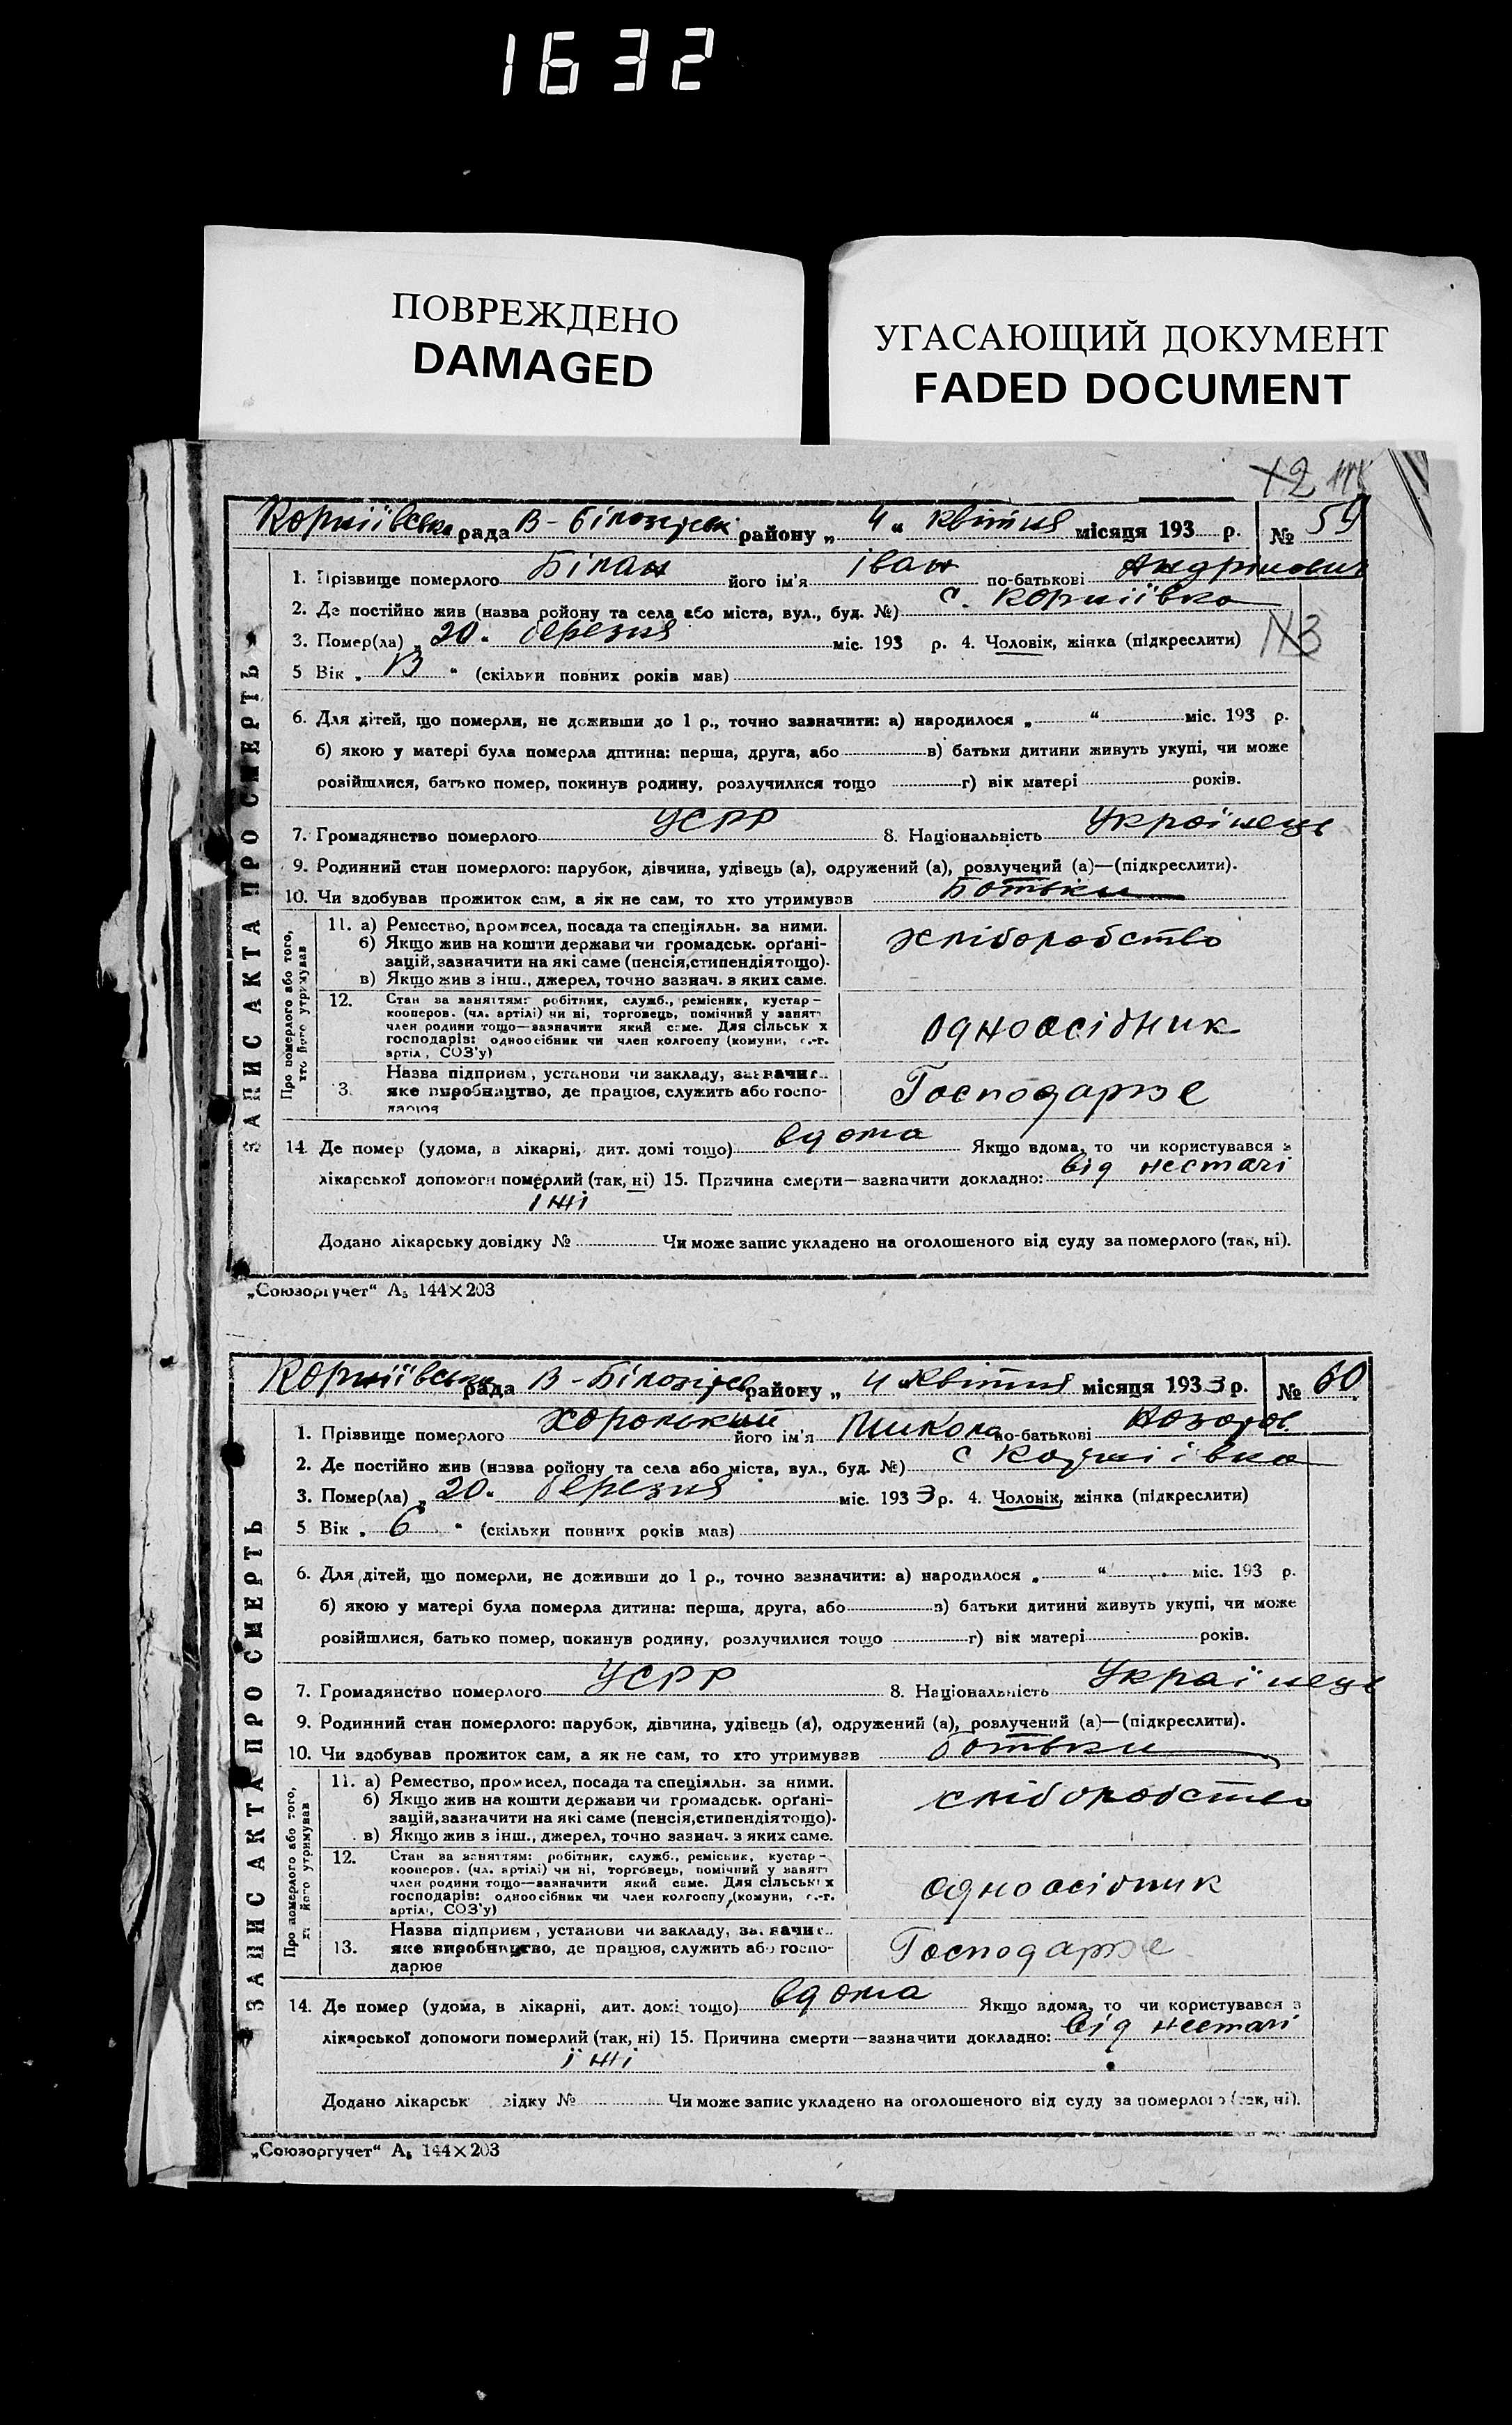 1632
ПОВРЕЖДЕНО
DAMAGED
УГАСАЮЩИЙ ДОКУМЕНТ
FADED DOCUMENT
ЗАПИС АКТА ПРО СМЕРТЬ
Корніївська рада В-Білозірськ району „ 4 “ квітня місяця 193 р. № 59
1. Прізвище померлого Білан його ім'я Іван по-батькові
2. Де постійно жив (назва району та села або міста, вул., буд. №) с. Корніївка
3. Помер(ла) „ 20 “ березня міс. 193 р. 4. Чоловік, жінка (підкреслити)
5 Вік „ 13 “ (скільки повних років мав)
6. Для дітей, що померли, не доживши до 1 р., точно зазначити: а) народилося „ “ міс. 193 р.
б) якою у матері була померла дитина: перша, друга, або в) батьки дитини живуть укупі, чи може
розійшлися, батько помер, покинув родину, розлучилися тощо г) вік матері років.
7. Громадянство померлого УСРР 8. Національність Українець
9. Родинний стан померлого: парубок, дівчина, удівець (а), одружений (а), розлучений (а)—(підкреслити).
10. Чи здобував прожиток сам, а як не сам, то хто утримував Батьки
Про померлого або того, хто його утримував
11. а) Ремество, промисел, посада та спеціяльн. за ними.
б) Якщо жив на кошти держави чи громадськ. орґані-
зацій, зазначити на які саме (пенсія, стипендія тощо).
в) Якщо жив з інш., джерел, точно зазнач. з яких саме.
хліборобство
12. Стан за заняттям: робітник, служб., ремісник, кустар-
кооперов. (чл. артілі) чи ні, торговець, помічний у занят
член родини тощо—зазначити який саме. Для сільськ х
господарів: одноосібник чи член колгоспу (комуни, с.-г.
артіл, СОЗ'у)
одноосібник
13. Назва підприєм, установи чи закладу, зазначит
яке виробництво, де працює, служить або госпо-
дарює
Господарює
14. Де помер (удома, в лікарні, дит. домі тощо) вдома Якщо вдома, то чи користувався з
лікарської допомоги померлий (так, ні) 15. Причина смерти—зазначити докладно: від нестачі
їжі
Додано лікарську довідку № Чи може запис укладено на оголошеного від суду за померлого (так, ні).
„Союзоргучет“ А₅ 144×203
ЗАПИС АКТА ПРО СМЕРТЬ
Корніївська рада В-Білозірськ району „ 4 “ квітня місяця 1933 р. № 60
1. Прізвище померлого Хорольский його ім'я Микола по-батькові
2. Де постійно жив (назва району та села або міста, вул., буд. №) с Корніївка
3. Помер(ла) „ 20 “ березня міс. 1933 р. 4. Чоловік, жінка (підкреслити)
5 Вік „ 6 “ (скільки повних років мав)
6. Для дітей, що померли, не доживши до 1 р., точно зазначити: а) народилося „ “ міс. 193 р.
б) якою у матері була померла дитина: перша, друга, або в) батьки дитини живуть укупі, чи може
розійшлися, батько помер, покинув родину, розлучилися тощо г) вік матері років.
7. Громадянство померлого УСРР 8. Національність Українець
9. Родинний стан померлого: парубок, дівчина, удівець (а), одружений (а), розлучений (а)—(підкреслити).
10. Чи здобував прожиток сам, а як не сам, то хто утримував батьки
Про померлого або того, його утримував
11. а) Ремество, промисел, посада та спеціяльн. за ними.
б) Якщо жив на кошти держави чи громадськ. орґані-
зацій, зазначити на які саме (пенсія, стипендія тощо).
в) Якщо жив з інш., джерел, точно зазнач. з яких саме.
хліборобство
12. Стан за заняттям: робітник, служб., ремісник, кустар-
кооперов. (чл. артілі) чи ні, торговець, помічний у занят
член родини тощо—зазначити який саме. Для сільських
господарів: одноосібник чи член колгоспу (комуни, с.-г.
артіл, СОЗ'у)
одноосібник
13. Назва підприєм, установи чи закладу, зазначит
яке виробництво, де працює, служить або госпо-
дарює
Господарює
14. Де помер (удома, в лікарні, дит. домі тощо) вдома Якщо вдома, то чи користувався з
лікарської допомоги померлий (так, ні) 15. Причина смерти—зазначити докладно: від нестачі
їжі
Додано лікарськ відку № Чи може запис укладено на оголошеного від суду за померлого (так, ні).
„Союзоргучет“ А₅ 144×203